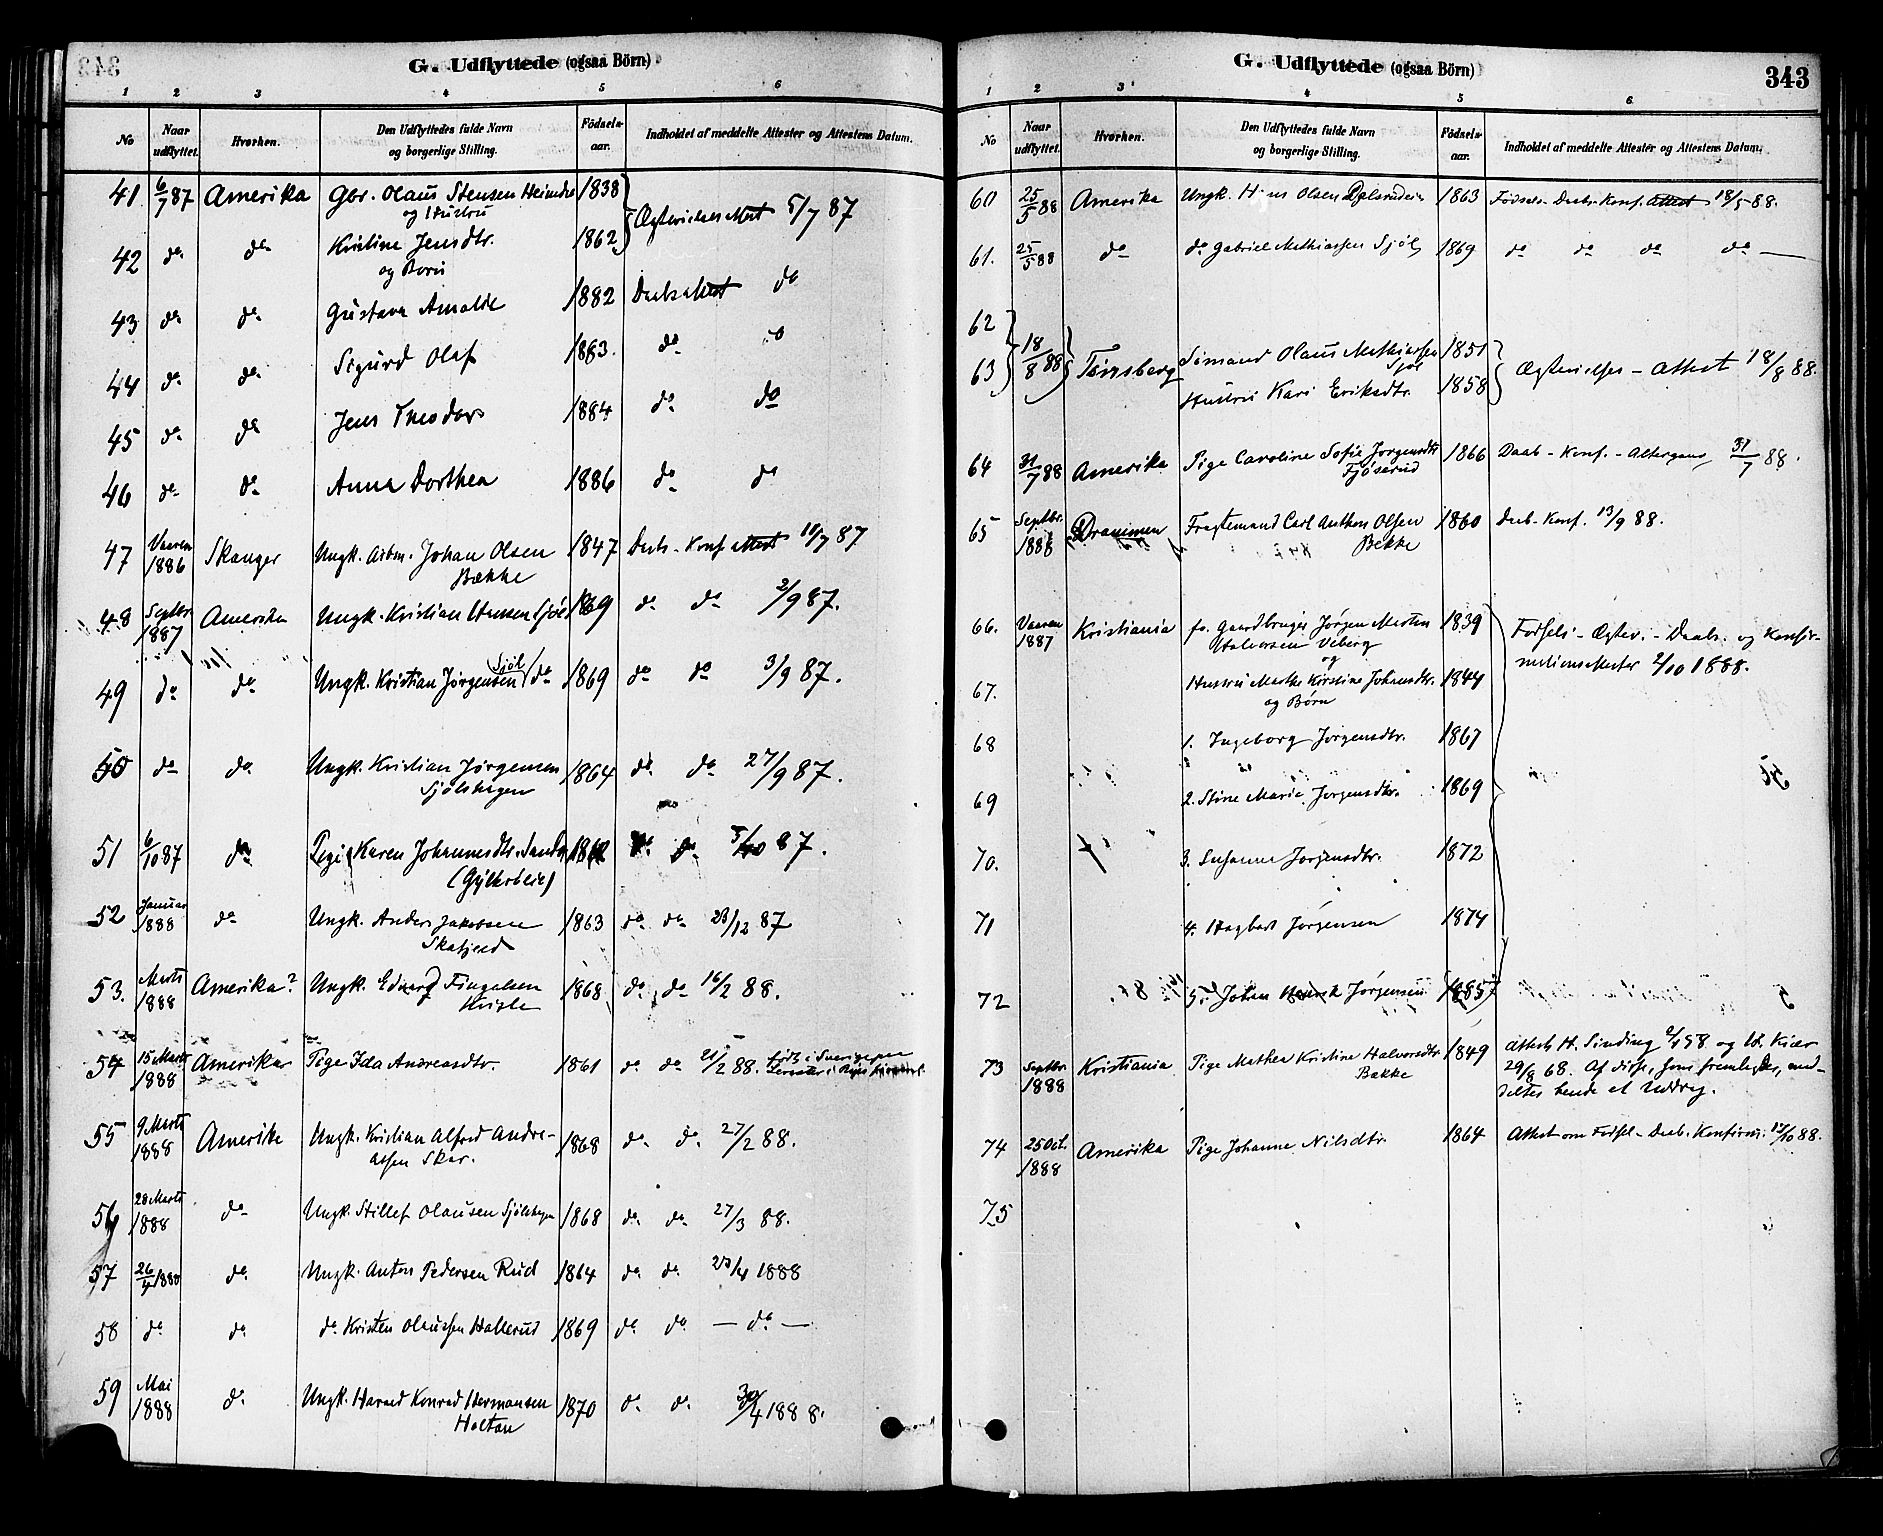 G. Udflyttede (ogsaa Börn)
1 2 3 4 5 6
No Naar udflyttet. Hvorhen. Den Udflyttedes fulde Navn og borgerlige Stilling. Födsels-aar. Indholdet af meddelte Attester og Attestens Datum.
41 6/7 87 Amerika Gbr. Olaus Stensen 1838
og Hustru Ægtevielses Attest 5/7 87
42 do do Kristine Jensdtr. 1862
og Børn
43 do do Gustava Amalie 1882 Daabs Attest do
44 do do Sigurd Olaf 1883. do do
45 do do Jens Theodor 1884 do do
46 do do Anna Dorthea 1886 do do
47 Vaaren 1886 Skanger Ungk. Arbm. Johan Olsen 1847 Daabs- Konf attest 18/7 87
Bække
48 Septbr. 1887 Amerika Ungk. Kristian Hansen Sjøl 1869 do do 2/9 87.
49 do do Ungk. Kristian Jørgensen Sjøl do 1869 do do 3/9 87.
50 do do Ungk. Kristian Jørgensen 1864 do do 27/9 87.
Sjølshagen
51 6/10 87 do Pige Karen Johannesdtr. do do 5/10 87.
52 Januar 1888 do Ungk. Anders Jakobsen 1863 do do 23/12 87
Skafjerd
53. Marts 1888 Amerika? Ungk. Edvard Fingalsen 1868 do do 16/2 88.
54 15 Marts 1888 Amerika Pige Ida Andreasdtr. 1861 do do 21/2 88. født i Sverige
55 9 Marts 1888 Amerika Ungk. Kristian Alfred Andre- 1868 do do 27/2 88.
assen Skar.
56 28 Marts 1888 do Ungk. Stillef Olausen Sjølshagen 1868 do do 27/3 88.
57 26/4 1888 do Ungk. Anton Pedersen Rud 1864 do do 25/4 1888
58 do do do Kristen Olaussen Hallerud 1869 do do — do —
59 Mai 1888 do Ungk. Harald Konrad Hermansen 1870 do do 30/4 1888.
Holtan
G. Udflyttede (ogsaa Börn)
343
1 2 3 4 5 6
No Naar udflyttet. Hvorhen. Den Udflyttedes fulde Navn og borgerlige Stilling. Födsels-aar. Indholdet af meddelte Attester og Attestens Datum.
60 25/5 88 Amerika Ungk. Hans Olsen 1863 Fødsels- Daabs- Konf. attest 18/5 88.
61. 25/5 88 do do Gabriel Mathiassen Sjøl 1869 do do do do —
62 18/8 88 Tønsberg Sømand Olaus Mathiassen 1851 Ægtevielses - attest 18/8 88.
Sjøl
63 Hustru Kari Eriksdtr. 1858
64 31/7 88 Amerika Pige Caroline Sofie Jørgensdtr 1866 Daab - Konf. - Altergang 31/7 88.
Fjøserud
65 Septbr. 1888 Drammen Fragtemand Carl Anthon Olsen 1860 Daab- Konf. 13/9 88.
Bække
66. Vaaren 1887 Kristiania fv. Gaardbruger Jørgen Martin 1839 Fødsels- Ægtev. - Daabs- og Konfir-
Halvorsen Viberg mations Attester 2/10 1888.
og
67. Hustru Marthe Kirstine Johansdtr. 1844
og Børn
68 1. Ingeborg Jørgensdtr. 1867
69 2. Stine Marie Jørgensdtr. 1869
70. 3. Susanne Jørgensdtr. 1872
71 4. Hagbart Jørgensen 1874
72 5. Johan Henrik Jørgensen 1885
73 Septbr 1888 Kristiania Pige Mathea Kristine Halvorsdtr. 1849 Attest H. Sinding og W. Kiær
Bække 29/8 68. Af disse, som fremlagdes, med-
deltes hende et Uddrag.
74 25 Oct. 1888 Amerika Pige Johanne Nilsdtr. 1864 Attest om Fødsel- Daab. Konfirm. 12/10 88.
75